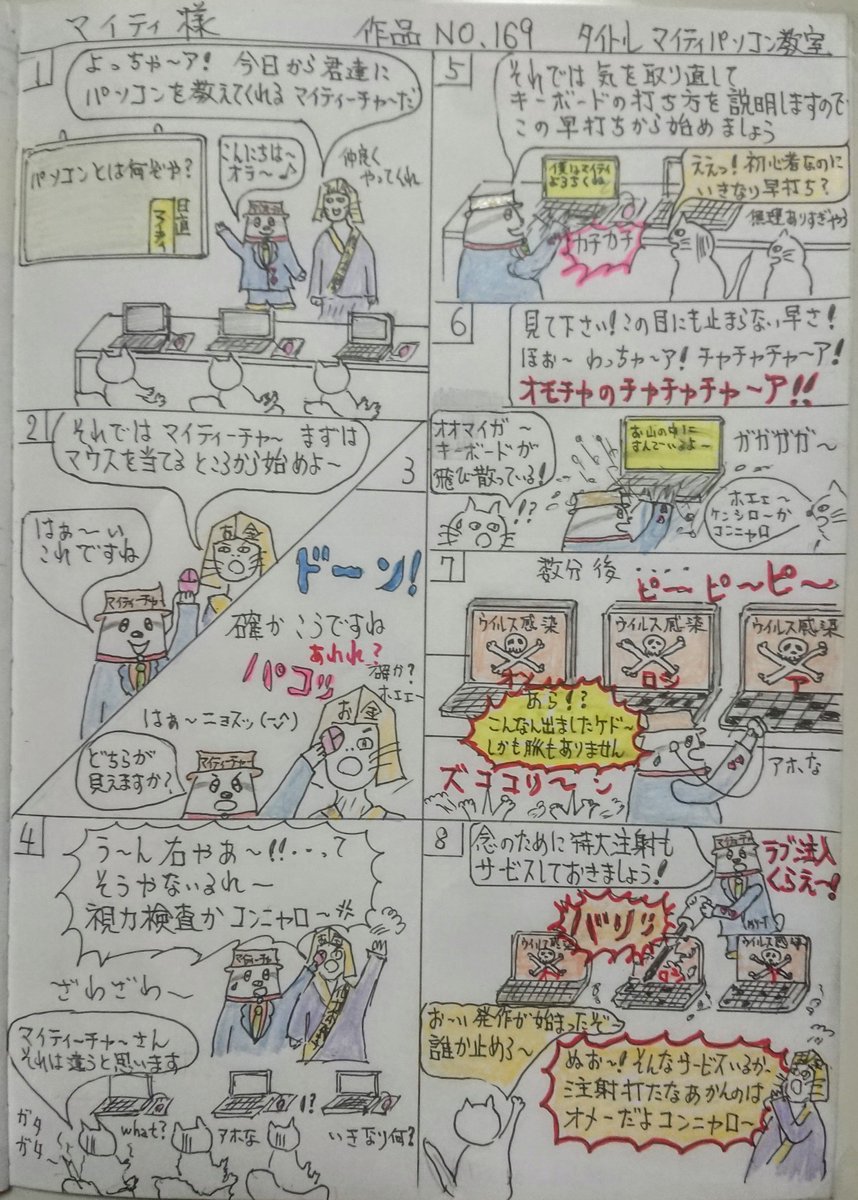 マイティ様 作品NO.169 タイトル マイティパソコン教室
1
よっちゃ〜ア! 今日から君達に
パソコンを教えてくれる マイティーチャ〜だ
パソコンとは何ぞや?
日直
マイティ
こんにちは〜
オラ〜♪
仲良く
やってくれ
2
それでは マイティーチャ〜 まずは
マウスを当てる ところから始めよ〜
はぁ〜い
これですね
お金
マイティーチャ
3
ドーン!
確か こうですね
あれれ?
パコッ
確か?
ホエエー
はぁ〜ニョスッ
お金
どちらが
見えますか?
マイティーチャ〜
4
う〜ん 右やぁ〜!!・・・って
そうやないるれ〜
視力検査か コンニャロ〜
マイティーチャ
お金
ざわざわ〜
マイティ〜チャ〜さん
それは違うと思います
ガタ
ガタ〜
what?
アホな
!?
いきなり何?
5
それでは 気を取り直して
キーボードの打ち方を説明しますので
この早打ちから始めましょう
僕はマイティ
よろちくね
ええっ! 初心者なのに
いきなり早打ち?
無理ありすぎやろ
カチカチ
6
見て下さい!この目にも止まらない早さ!
ほぉ〜 わっちゃ〜ア! チャチャチャ〜ア!
オモチャのチャチャチャ〜ア!!
オオマイガ〜
キーボードが
飛び散っている!
!?
お山の中に
すんでいるよ〜
ガガガガ〜
ホエェ〜
ケンシロ〜か
コンニャロ
7
数分後・・・・・
ピ〜ピ〜ピ〜
ウイルス感染
ウイルス感染
ウイルス感染
オン
ロシ
ア
あら!?
こんなん出ましたケド〜
しかも脈もありません
アホな
ズココリ〜ン
8
念のために特大注射も
サービスしておきましょう!
マイティーチャ
ラブ注入
くらえ〜!
MY-T
バリッ
ウイルス
ウイルス感染
お〜い 発作が始まったぞ〜
誰か止めろ〜
ぬお〜! そんなサービスいるか〜
注射打たなあかんのは
オメーだよ コンニャロ〜